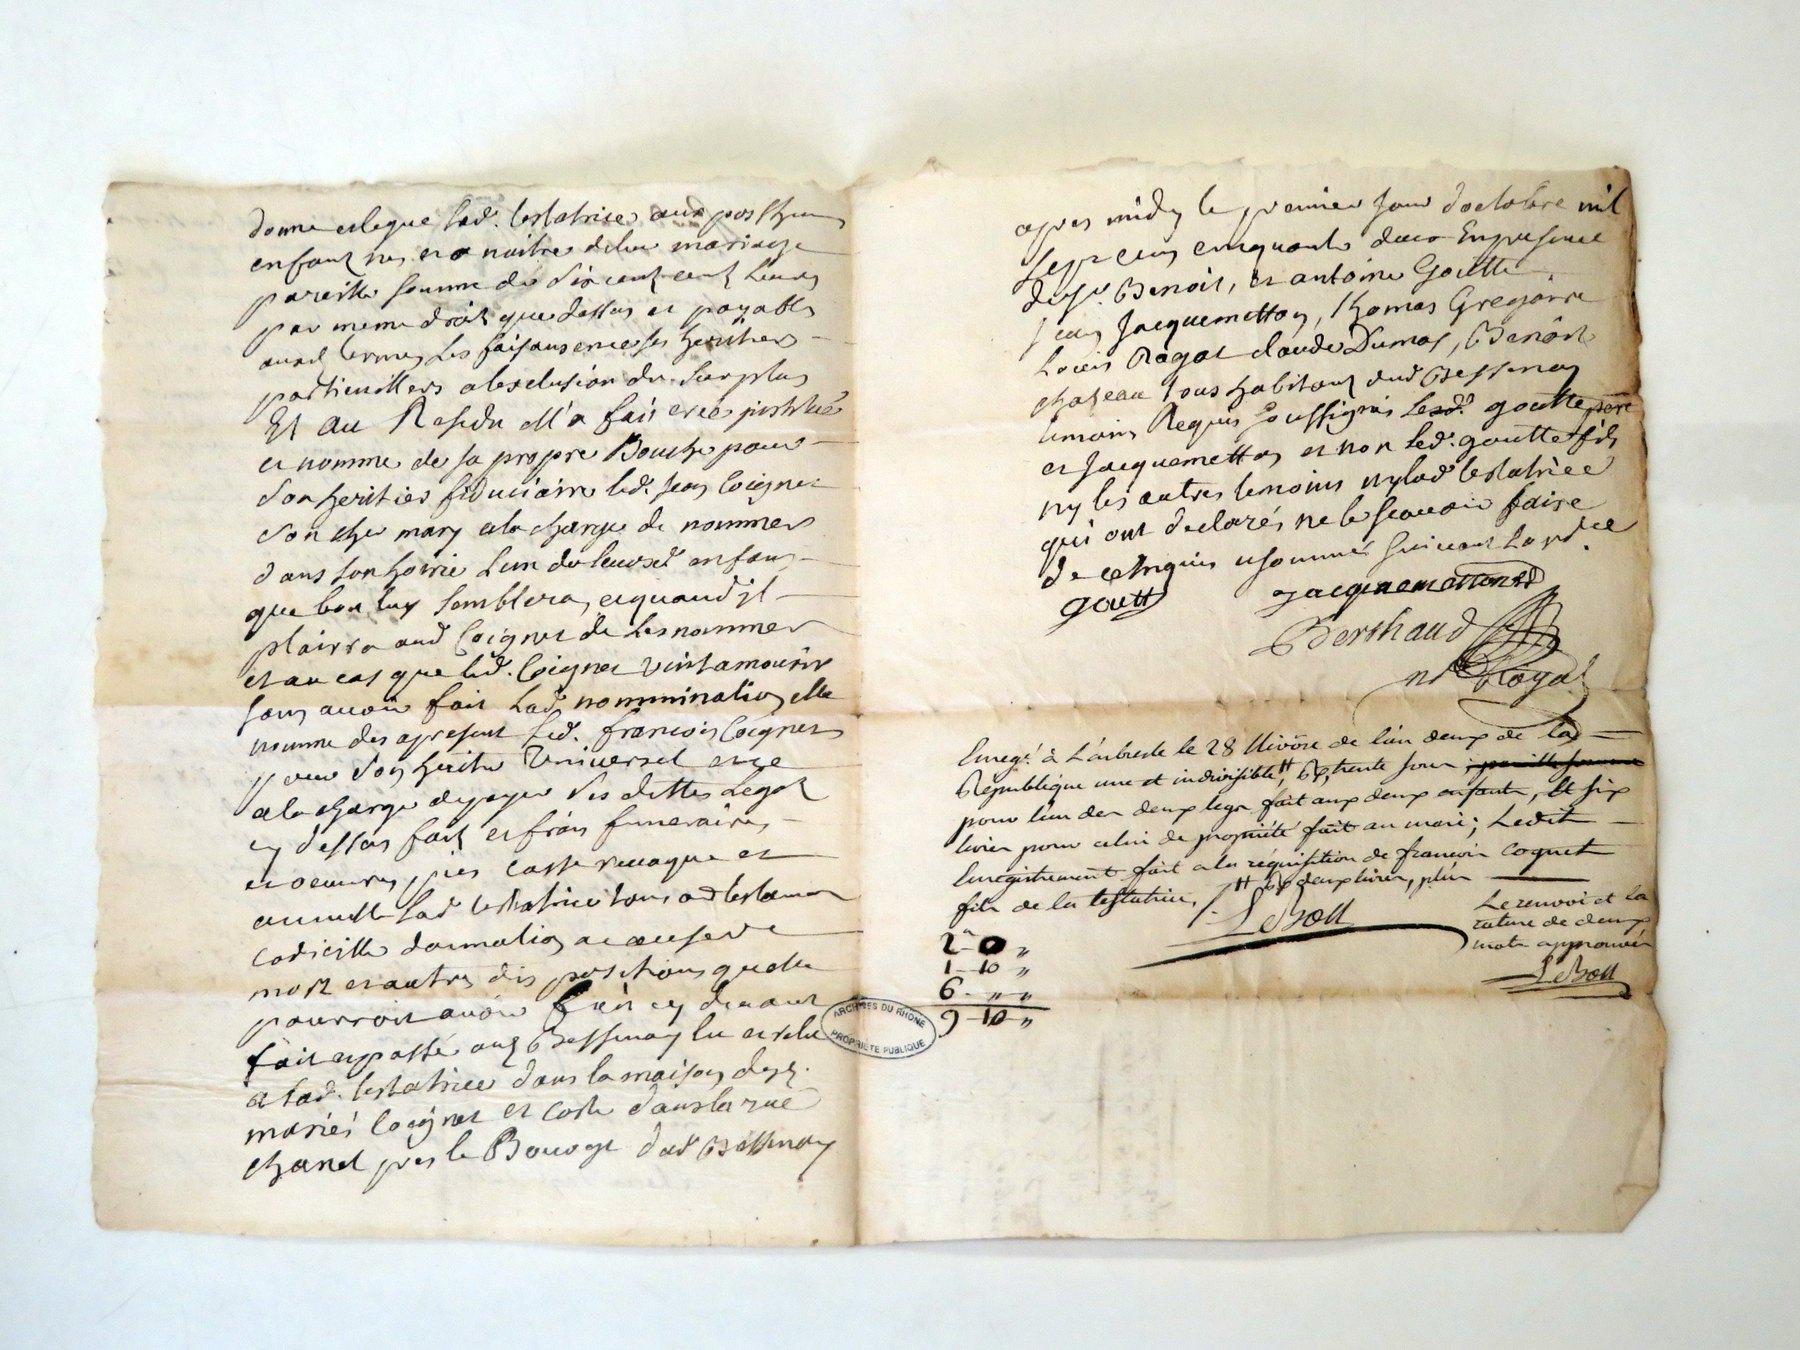 donne et legue lad. testatrice aux posthumes
enfant nes et a naitre de leur mariage
pareille somme de dix cent livres
par meme droit que dessus et payable
aud. termes les faisans en ce ses heritiers
particulliers a lexclusion du surplus
Et au Residu ella fait cree justitué
et nomme de sa propre Bouche pour
son heritier fiduciaire led. Jean Coignet
son cher mary a la charge de nommer
dans son hoirie lun de leursd. enfans
que bon luy semblera, et quand jl
plairra aud Coignet de les nommer
et au cas que led. Coignet vint a mourir
sans avoir fait lad. nommination elle
nomme des apresent led. francois Coignet
pour son heritier Universel en ce
a la charge de payer ses dettes legat
cy dessus fait et frais funeraires
et oeuvres pies casse revoque et
annulle lad testatrice tous aud testamen
codicille donnation a cause de
mort et autres dispositions quelle
pourroit avoir fait cy devant
fait et passé aud Bessenay lu et relu
a lad. testatrice dans la maison desd.
mariés Coignet et Coste dans la rue
chanel pres le Bourge dud Bessenay
apres midy le premier jour doctobre mil
sept cens cinquante deux En presence
de sr. Benoit, et antoine Goutte
jean Jacquemetton, thomas Gregoire
Louis Ragat claude Dumas, Benoit
chateau tous habitant dud Bessenay
temoins Requis soussignés led. goutte pere
et jacquemetton et non led. goutte fils
ny les autres temoins ny lad testatrice
qui ont declarés ne le scavoir faire
de ce enquis et sommés suivant lord.ce
goutte jacquemetton
Berthaud
nre Royal
Enregé. à L'arbresle le 28 Nivôse de l'an deux de la
République une et indivisible, Rs trente sous pareille somme
pour l'un des deux legs fait aux deux enfants, et six
livres pour celui de propriété fait au mari; Ledit
Enregistrement fait a la réquisition de francois Cognet
fils de la testatrice, /. # Rs deux livres, plus
LeBoll
Le renvoi et la
rature de deux
mots approuvés
LeBoll
2 - 0 "
1 - 10 "
6 - " "
9 - 10 "
ARCHIVES DU RHONE
PROPRIETE PUBLIQUE